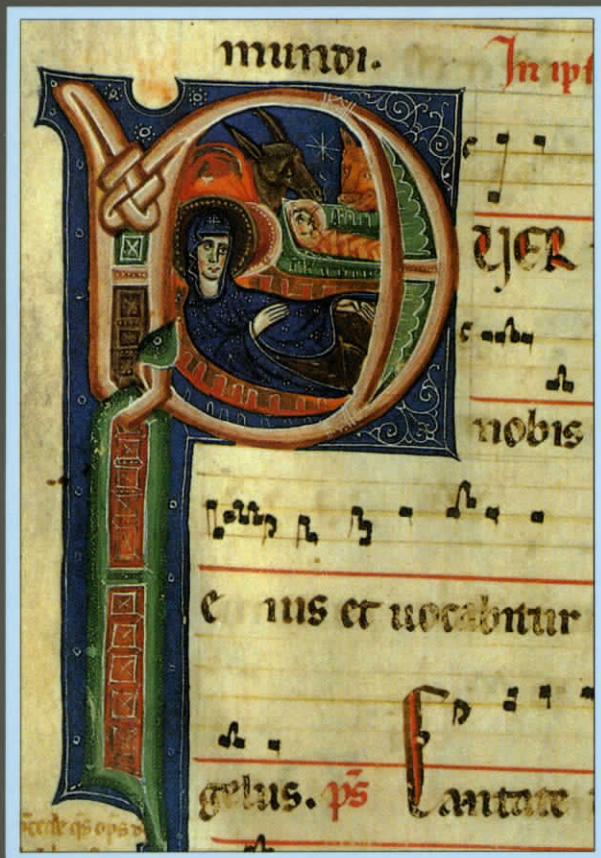 mundi.
In ipſ
P
UER
nobis
e ius et uocabitur
gelus. p̄s Cantate